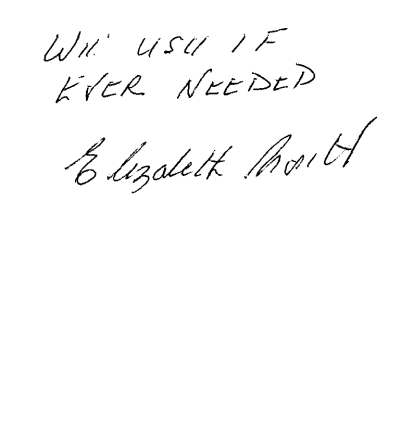 Will USE IF
EVER NEEDED
Elizabeth